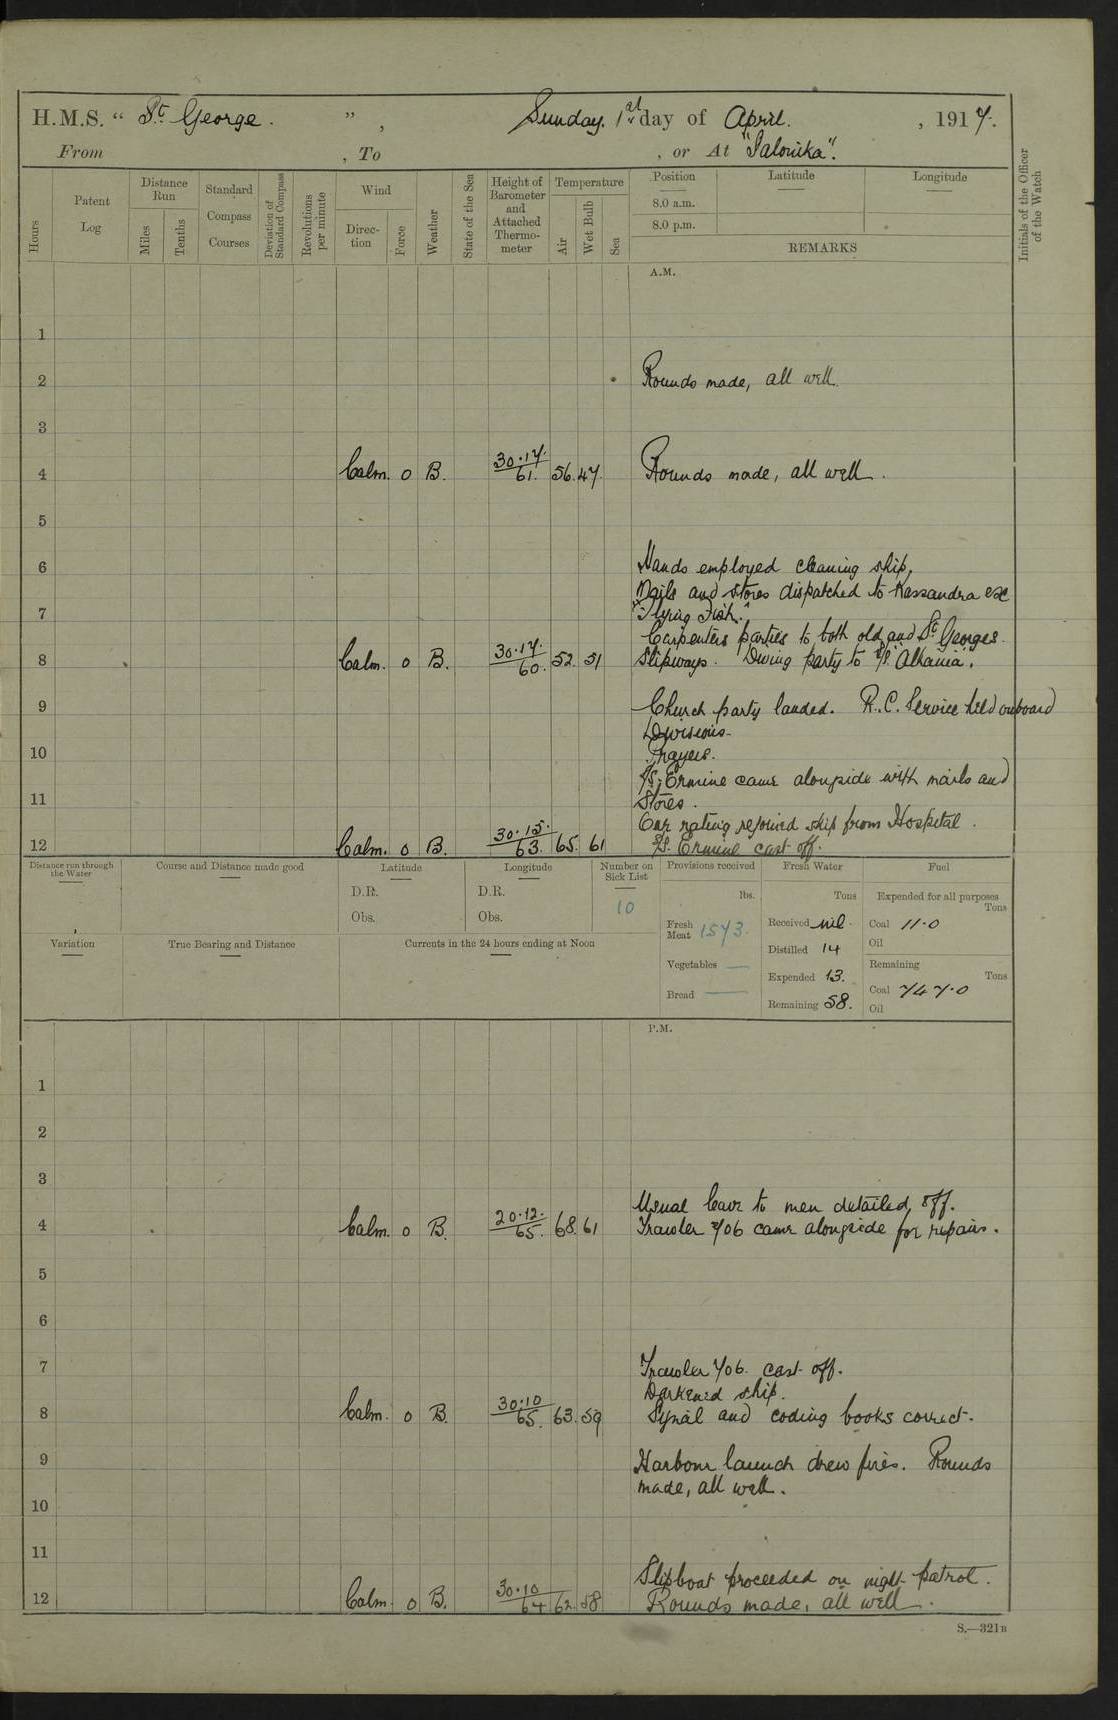 H.M.S. “ St George. ” , Sunday. 1st day of April. , 1917.
From , To , or At "Salonika".
Hours
Patent Log
Distance Run
Miles
Tenths
Standard Compass Courses
Deviation of Standard Compass
Revolutions per minute
Wind
Direction
Force
Weather
State of the Sea
Height of Barometer and Attached Thermometer
Temperature
Air
Wet Bulb
Sea
Position
8.0 a.m.
8.0 p.m.
Latitude
Longitude
REMARKS
Initials of the Officer of the Watch
A.M.
1
2 Rounds made, all well.
3
4 Calm. 0 B. 30.17. 61. 56. 47. Rounds made, all well.
5
6 Hands employed cleaning ship.
Mails and stores dispatched to Kassandra exc
7 "Flying Fish."
Carpenters parties to both old and St Georges
8 Calm. 0 B. 30.17. 60. 52. 51 Slipways. Diving party to S/S. "Alhania".
9 Church party landed. R.C. Service held onboard
Divisions.
10 Prayers.
S/S. Ermine came alongside with mails and
11 Stores.
One rating rejoined ship from Hospital.
12 Calm. 0 B. 30.15. 63. 65. 61 S/S. Ermine cast off.
Distance run through the Water
Course and Distance made good
Latitude
D.R.
Obs.
Longitude
D.R.
Obs.
Number on Sick List
10
Provisions received
lbs.
Fresh Meat 1573.
Vegetables —
Bread —
Fresh Water
Tons
Received nil.
Distilled 14
Expended 13.
Remaining 58.
Fuel
Expended for all purposes
Tons
Coal 11.0
Oil
Remaining
Tons
Coal 747.0
Oil
Variation
True Bearing and Distance
Currents in the 24 hours ending at Noon
P.M.
1
2
3
Usual leave to men detailed off.
4 Calm. 0 B. 20.12. 65. 68. 61 Trawler 706 came alongside for repairs.
5
6
7 Trawler 706. cast off.
Darkened ship.
8 Calm. 0 B. 30.10 65. 63. 59 Signal and coding books correct.
9 Harbour launch drew fires. Rounds
made, all well.
10
11
Slipboat proceeded on night patrol.
12 Calm. 0 B. 30.10 64 62. 58 Rounds made, all well.
S.—321B